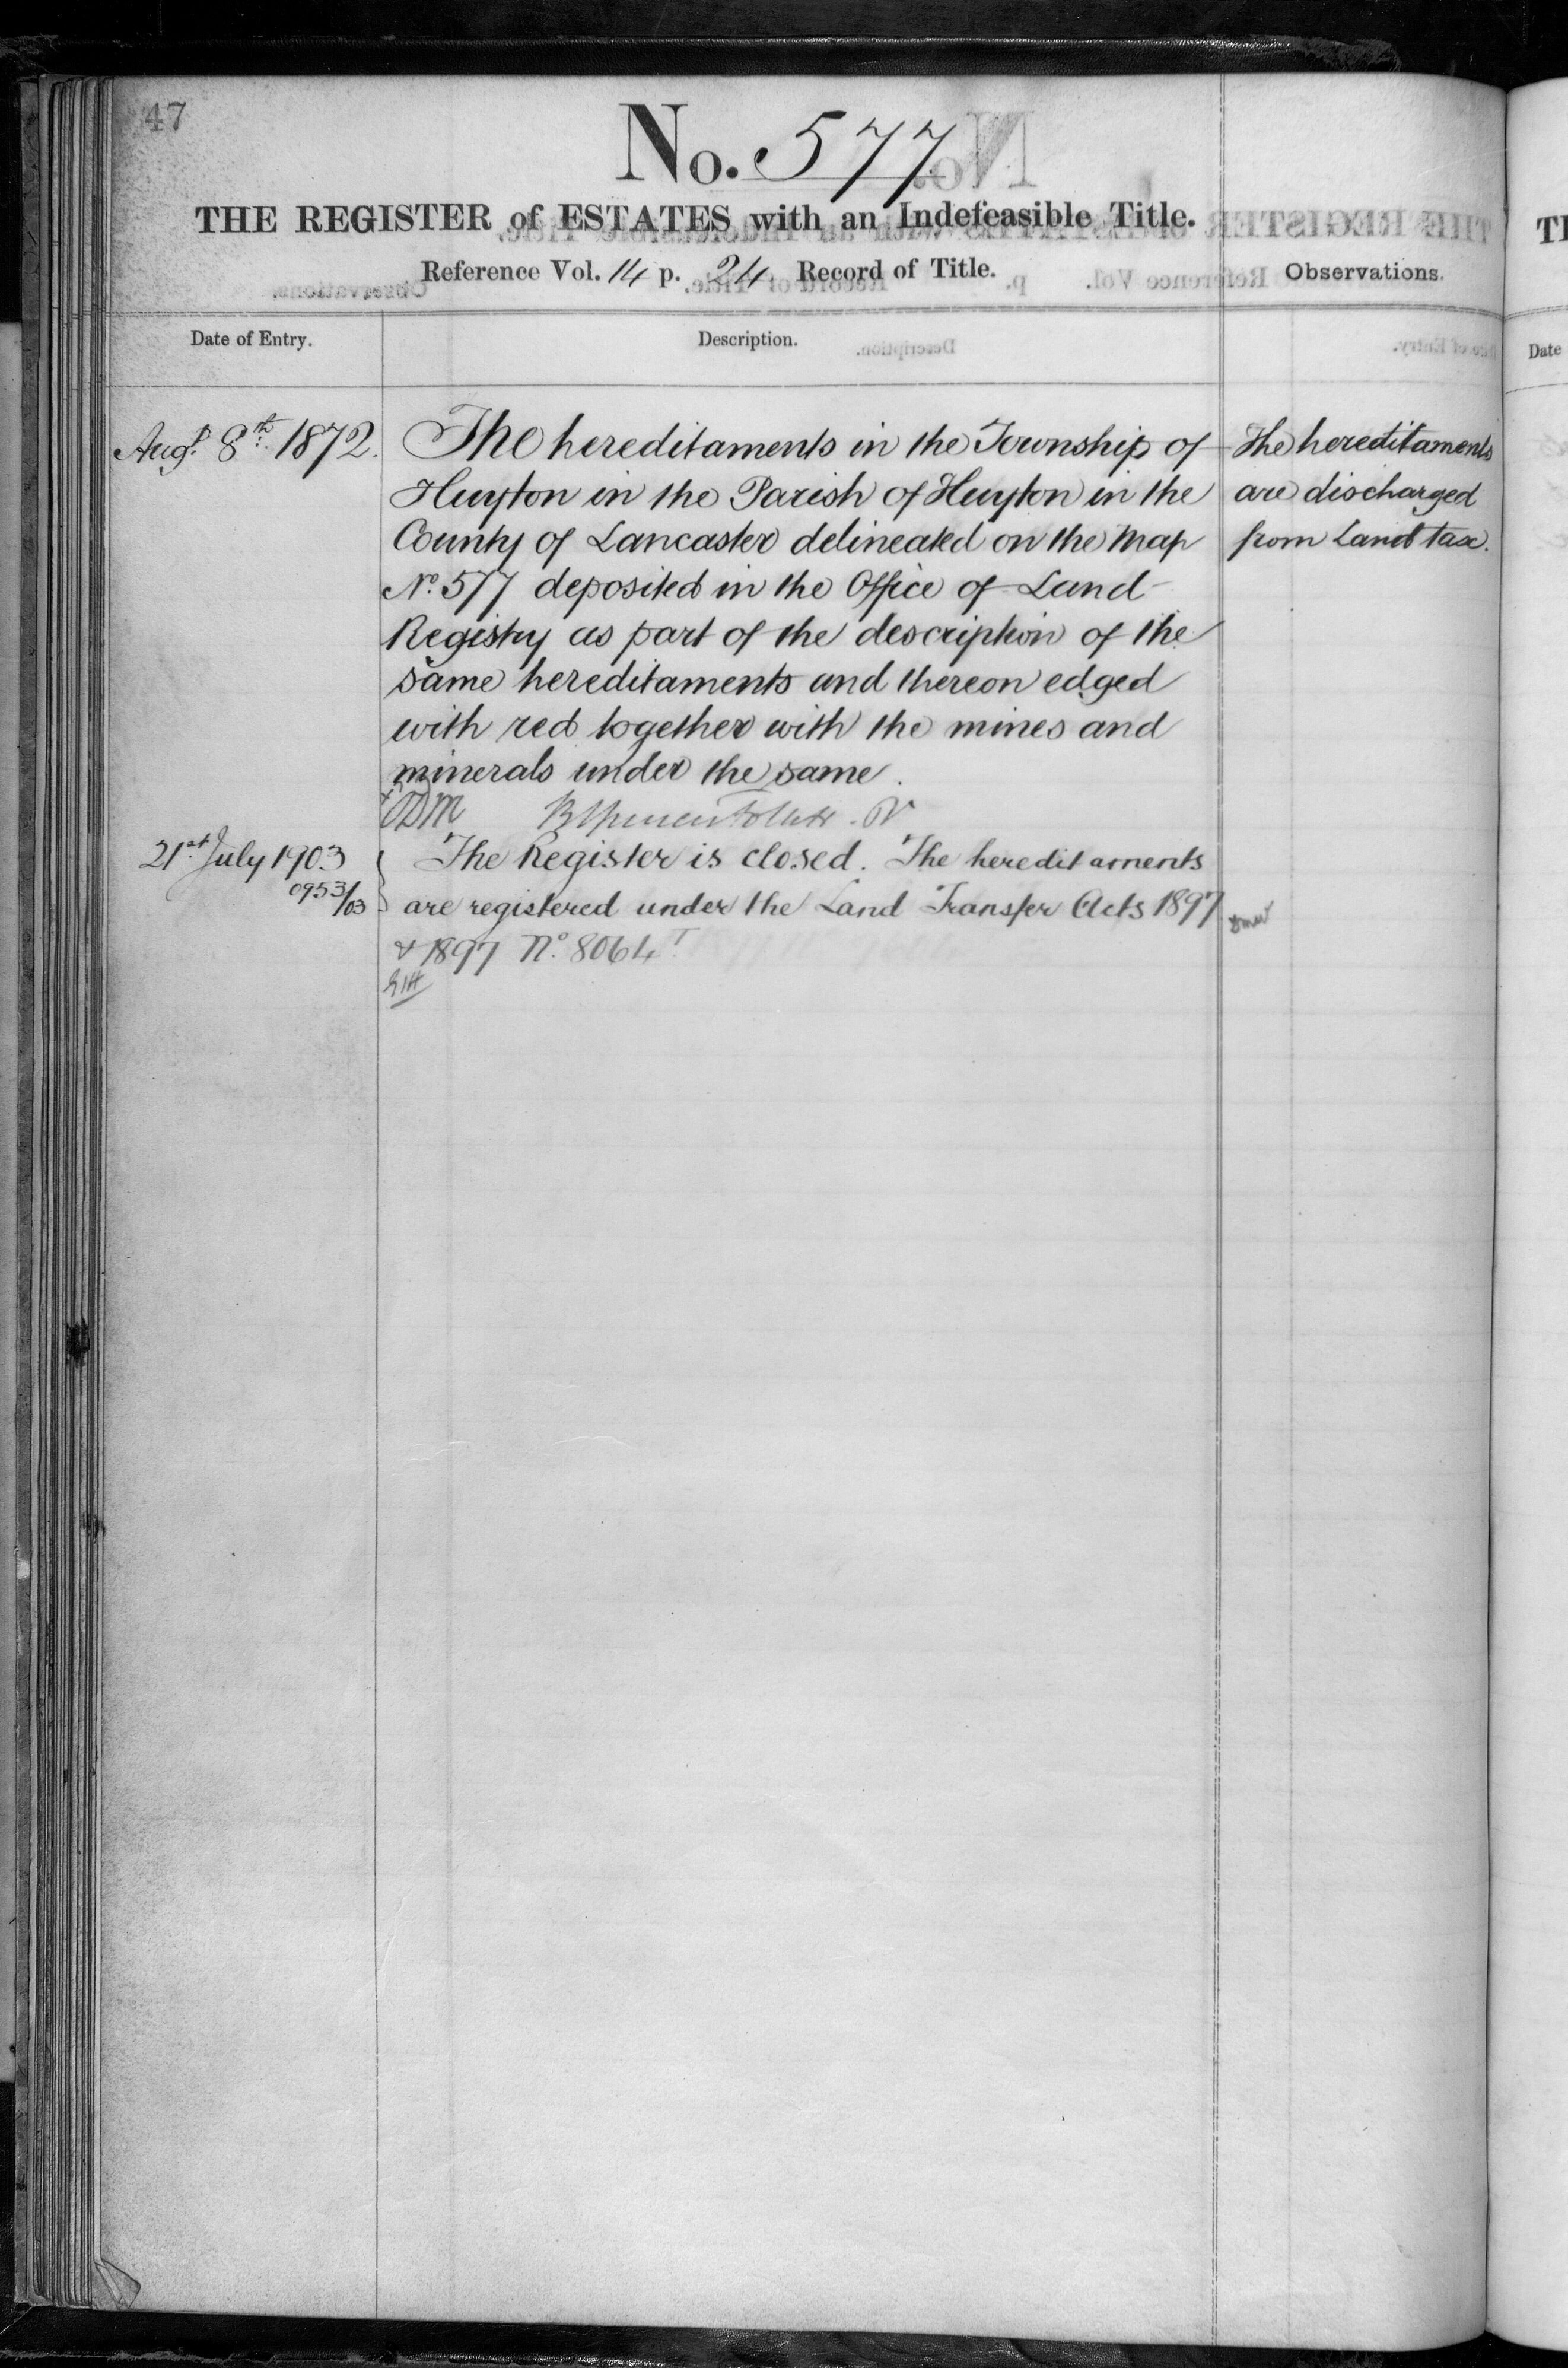 47
No. 577
THE REGISTER of ESTATES with an Indefeasible Title.
Reference Vol. 14 p. 24 Record of Title.
Observations.
Date of Entry.
Description.
Augt. 8th. 1872.
The hereditaments in the Township of
Huyton in the Parish of Huyton in the
County of Lancaster delineated on the Map
No. 577 deposited in the Office of Land
Registry as part of the description of the
same hereditaments and thereon edged
with red together with the mines and
minerals under the same.
The hereditaments
are discharged
from Land tax.
21st July 1903
0953/03
The Register is closed. The hereditaments
are registered under the Land Transfer Acts 1897
& 1897 No. 8064
Date